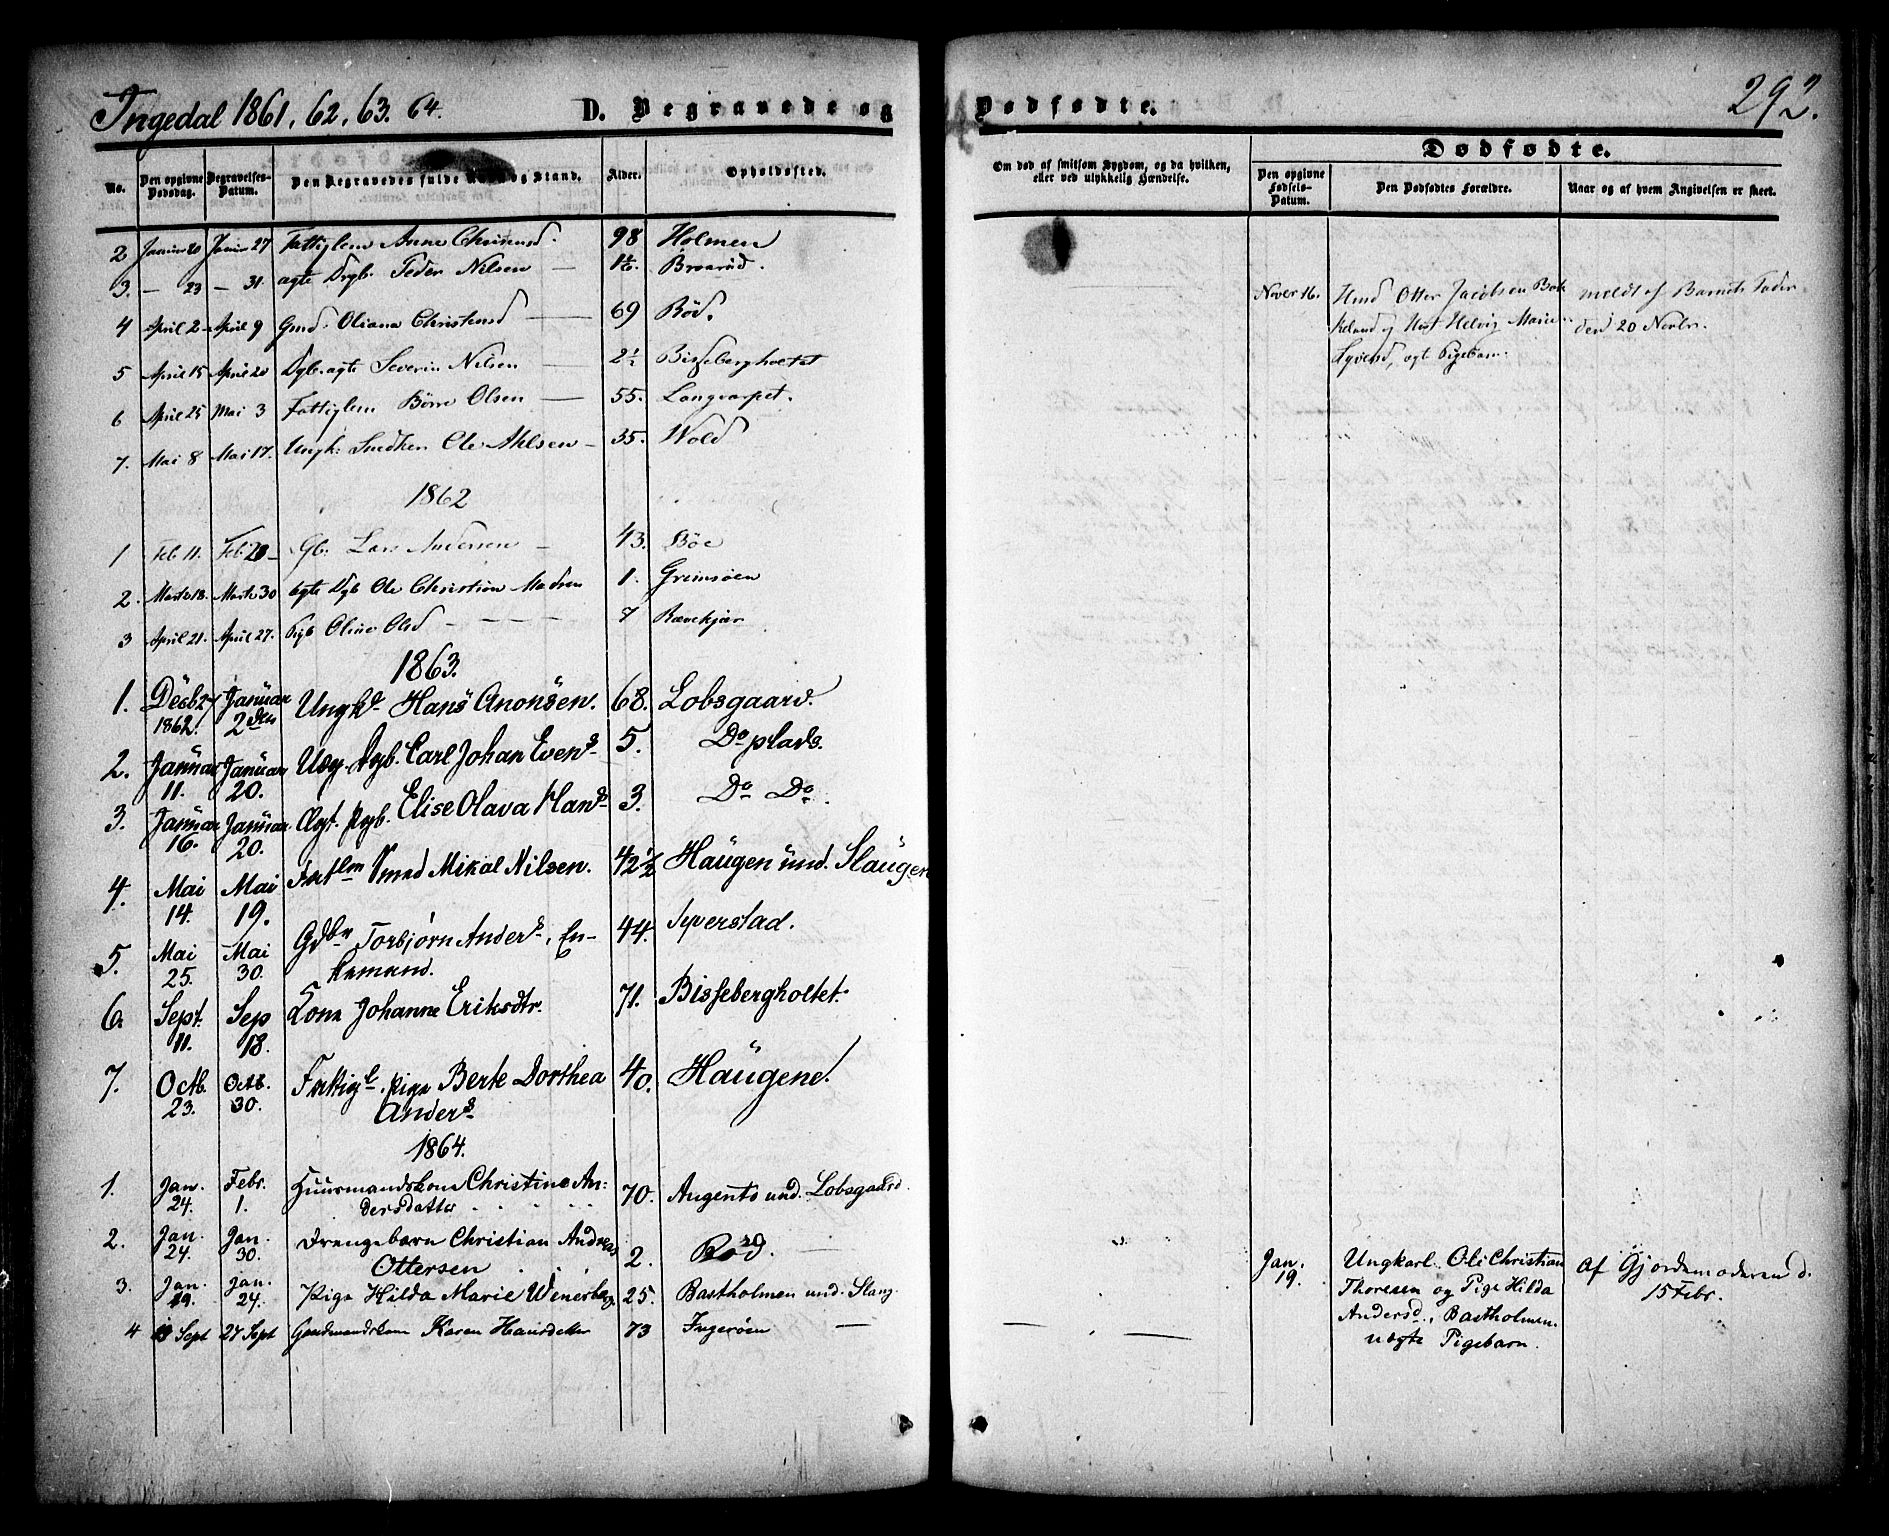 Ingedal 1861, 62, 63. 64.
D. Begravede og Dødfødte.
292.
No.
Den opgivne Dødsdag.
Begravelses-Datum.
Den Begravedes fulde Navn og Stand.
Alder.
Opholdssted.
Om død af smitsom Sygdom, og da hvilken, eller ved ulykkelig Hændelse.
Dødfødte.
Den opgivne Fødsels-Datum.
Den Dødfødtes Forældre.
Naar og af hvem Angivelsen er skeet.
2 Januar 20 Januar 27 Fattiglem Anne Christensd. 98 Holmen
3. — 23 — 31. ægte Drgb. Peder Nilsen — Braarød.
4 April 2 April 9 Gmd. Oliana Christensd — 69 Rød.
5 April 15 April 20 Dgb. ægte Severin Nilsen — 2½ Bissebergholtet
6 April 25 Mai 3 Fattiglem Børre Olsen — 55. Langvarpet.
7. Mai 8 Mai 17. Ungk: Snedker Ole Ahlsen — 35. Wold
Novbr 16. Hmd Otter Jacobsen meldt af Barnets Fader
og Hust Helvig Marie den 20 Novbr.
ægt Pigebarn.
1862
1 Feb. 11. Feb. 20 Gb. Lars Andersen — 43. Bøe
2. Marts 18. Marts 30 ægte Dgb Ole Christian Madsen 1. Greinsøen
3 April 21. April 27. Pigb Oline Olsd — — — 7 Rævekjær
1863.
1. Desb 27 Januar Ungk. Hans Anonsen. 68. Lobsgaard.
1862. 2den
2. Januar Januar Uæg. Dgb. Carl Johan Evens. 5. Do plads.
11. 20.
3. Januar Januar. Ægt. Pgb. Elise Olava Hansd 3. Do Do.
16. 20.
4. Mai Mai Fattlm Smed Mikal Nilsen. 42½ Haugen und. Slaugen
14. 19.
5. Mai Mai Gdbr Torbjørn Anders., En- 44. Syverstad.
25. 30. kemand.
6. Sept. Sep Kone Johanne Eriksdtr. 71. Bissebergholtet.
11. 18.
7. Octb. Octb. Fattigl. Pige Berte Dorthea 40. Haugene.
23. 30. Andersd.
1864.
1. Jan. Febr. Huusmandskone Christine An- 70. Augents und. Lobsgaard.
24. 1. dersdatter
2. Jan. Jan. Drengebarn Christian Andreas 2. Rød. —
24. 30. Ottersen
3. Jan. Jan. Pige Hilda Marie Wenerberg 25. Bastholmen und. Slaug.
19. 24.
4 Sept 27 Sept Gaardmandskone Karen Hansdatter 73 Ingerøen —
Jan. 19. Ungkarl. Ole Christian Af Gjordemoderen d.
Thoresen og Pige Hilda 15 Febr.
Andersd., Bastholmen.
uægte Pigebarn.